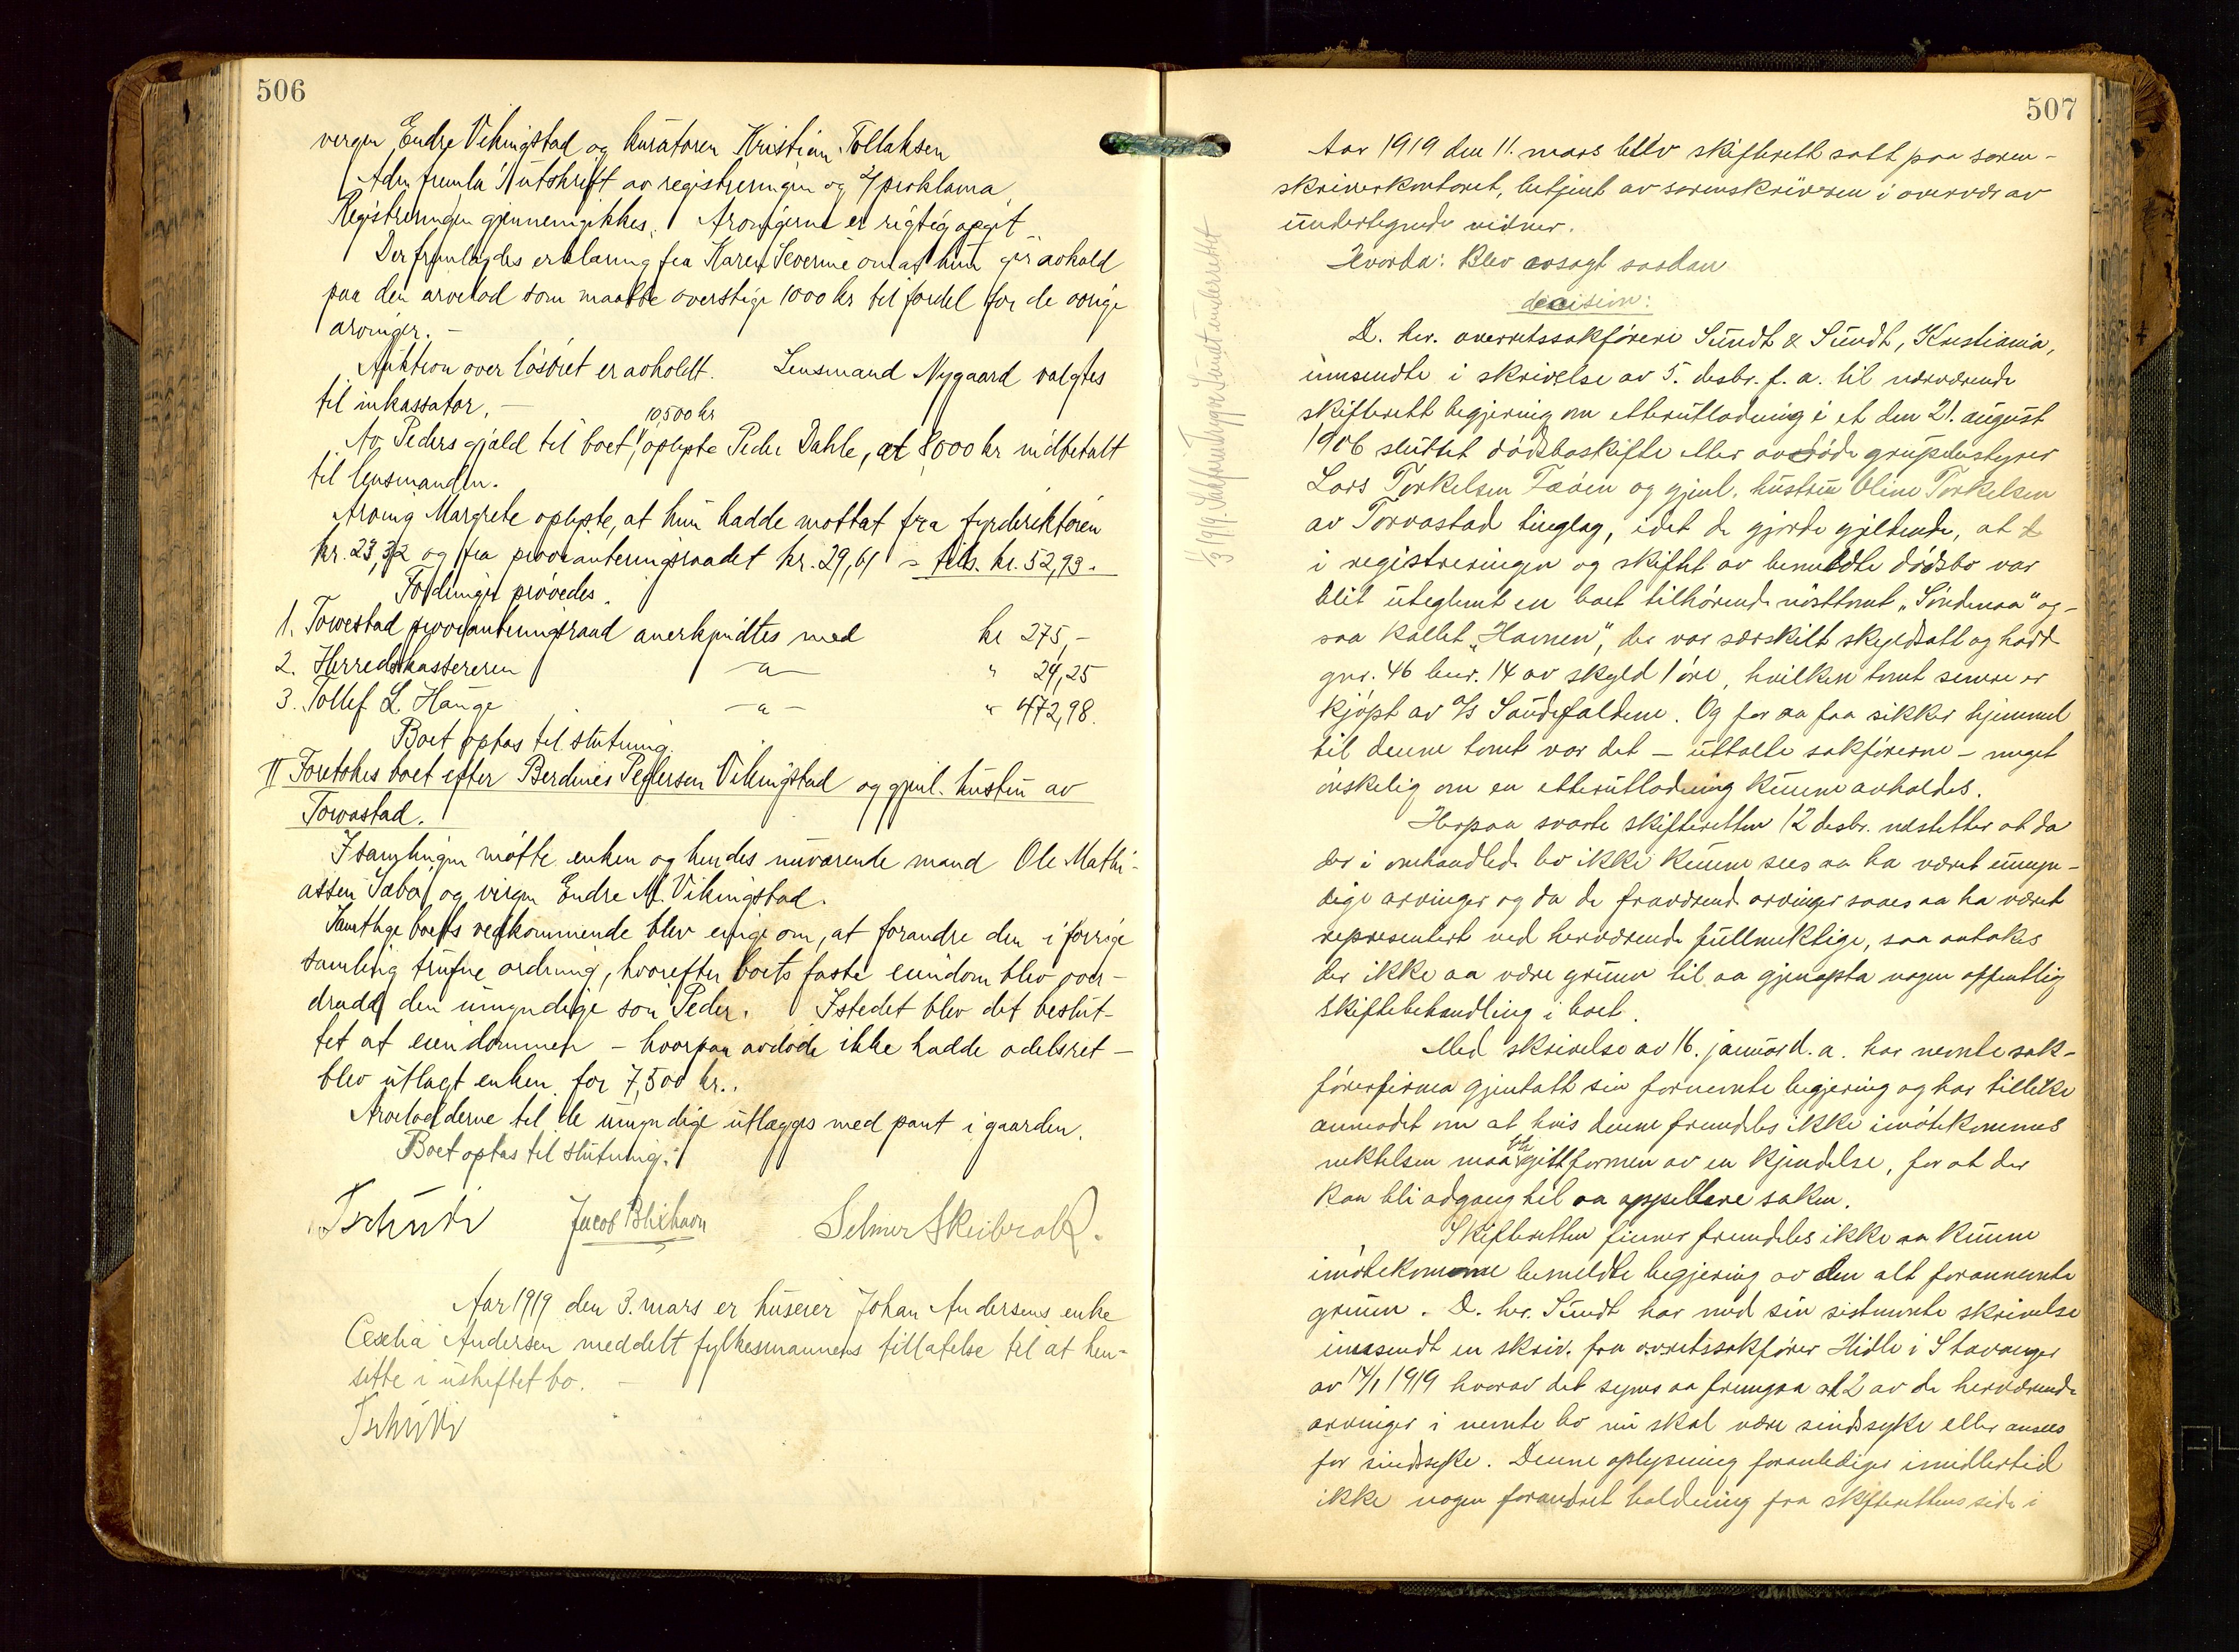 506
vergen Endre Vikingstad og kuratoren Kristian Tollaksen
Adm fremla 1/ utskrift av registreringen og 2/ proklama,
Registreringen gjennemgikkes. Arvingerne er rigtig opgit.
Der fremlagdes erklæring fra Karen Severine om at hun gir avkald
paa den arvelod som maatte overstige 1000 kr til fordel for de øvrige
arvinger. –
Auktion over løsøret er avholdt. Lensmand Nygaard valgtes
til inkassator. –
10,500 kr
Av Peders gjæld til boet, oplyste Peder Dahle, at 8000 kr indbetalt
til lensmanden.
Arving Margrete oplyste, at hun hadde mottat fra fyrdirektøren
kr. 23,32 og fra provianteringsraadet kr. 29,61 = tils. kr. 52,93.
Fordringer prøvedes.
1. Torvestad provianteringsraad anerkjendtes med kr 275,-
2. Herredskassereren —a— " 24,25
3. Tollef L. Hauge —a— " 472,98.
Boet optas til slutning.
II Foretokes boet efter Berdines Pedersen Vikingstad og gjenl. hustru av
Torvastad.
I samlingen møtte enken og hendes nuværende mand Ole Mathi-
assen Sæbø, og vergen Endre M. Vikingstad.
Samtlige boets vedkommende blev enige om, at forandre den i forrige
samling trufne ordning, hvorefter boets faste eiendom blev over-
dradd den umyndige søn Peder. Istedet blev det beslut-
tet at eiendommen – hvorpaa avdøde ikke hadde odelsret –
blev utlagt enken for 7,500 kr..
Arvelodderne til de umyndige utlægges med pant i gaarden.
Boet optas til slutning.
Tschudi Jacob Blixhavn Selmer Skeibrok.
Aar 1919 den 3. mars er huseier Johan Andersens enke
Cecelia Andersen meddelt fylkesmannens tillatelse til at hen-
sitte i uskiftet bo. –
Tschudi
507
Aar 1919 den 11. mars blev skifterett satt paa soren-
skriverkontoret, betjent av sorenskriveren i overvær av
undertegnede vidner.
Hvorda: Blev avsagt saadan
decision:
D. hrr. overretssakførere Sundt & Sundt, Kristiania,
innsendte i skrivelse av 5. desbr. f. a. til nærværende
skifterett begjæring om etterutlodning i et den 21. august
1906 sluttet dødsboskifte etter avdøde grubebestyrer
Lars Torkelsen Faøen og gjenl. hustru Oline Torkelsen
av Torvastad tinglag, idet de gjorde gjeldende, at
i registreringen og skiftet av bemeldte dødsbo var
blit uteglemt en boet tilhørende nøsttomt, "Søndenaa" og-
saa kallet "Havnen", der var særskilt skyldsatt og hadde
gnr. 46 bnr. 14 av skyld 1 øre, hvilken tomt senere er
kjøpt av A/S Saudefaldene. Og for aa faa sikker hjemmel
til denne tomt var det – uttalte sakførerne – meget
ønskelig om en etterutlodning kunne avholdes.
Herpaa svarte skifteretten 12 desbr. næstetter at da
der i omhandlede bo ikke kunne sees aa ha været umyn-
dige arvinger og da de fraværende arvinger saaes aa ha været
representert ved herværende fullmektige, saa antokes
der ikke aa være grunn til aa gjenopta nogen offentlig
skiftebehandling i boet.
Med skrivelse av 16. januar d. a. har nevnte sak-
førerfirma gjentatt sin fornevnte begjæring og har tillike
anmodet om at hvis denne fremdeles ikke imøtekommes
nektelsen maa bli gitt formen av en kjendelse, for at der
kan bli adgang til aa appellere saken.
Skifteretten finner fremdeles ikke aa kunne
imøtekomme bemeldte begjæring av den alt forannevnte
grunn. D. hrr. Sundt har med sin sistnevnte skrivelse
innsendt en skriv. fra overretssakfører Hidle i Stavanger
av 14/1 1919 hvorav det synes aa fremgaa at 2 av de herværende
arvinger i nevnte bo nu skal være sindssyke eller ansees
for sindssyke. Denne oplysning foranlediger imidlertid
ikke nogen forandret holdning fra skifterettens side i